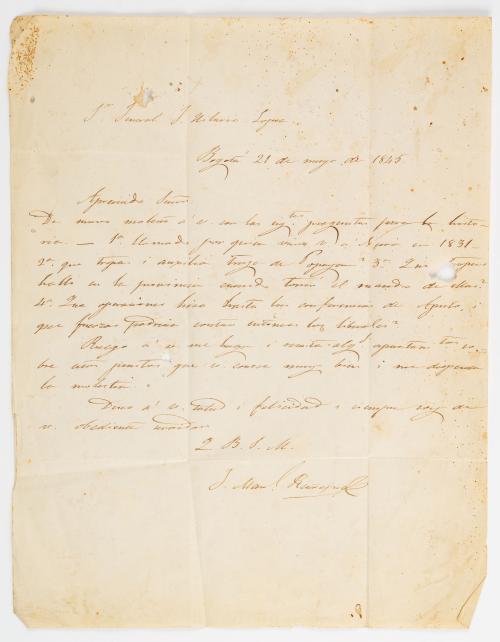 Sr. Jeneral J. Hilario Lopez.
Bogotá 21 de mayo de 1845
Apreciado Señor
De nuevo molesto á v. con las sigtes. preguntas para la histo-
ria. — 1ª. llamado por quien vino v. a Neiva en 1831
2ª. que tropa i auxilio trajo de Popayan? 3ª. Que tropas
halló en la provincia cuando tomó el mando de ellas?
4ª. Que operaciones hizo hasta las conferencias de Apulo, i
que fuerzas podrian contar entónces los liberales?
Ruego á v. me haga i remita algs. apuntamtos. so-
bre estos puntos que v. conoce mui bien i me dispense
la molestia.
Deseo á v. salud i felicidad i siempre soy de
v. obediente servidor
Q. B. S. M.
J. Manl. Restrepo